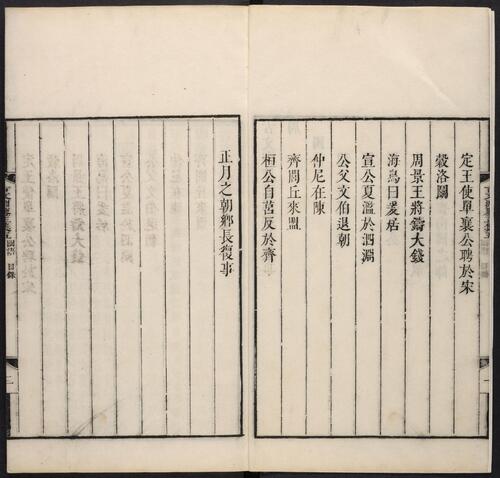 定王使單襄公聘於宋
穀洛鬭
周景王將鑄大錢
海鳥曰爰居
宣公夏濫於泗淵
公父文伯退朝
仲尼在陳
齊閭丘來盟
桓公自莒反於齊
正月之朝鄉長復事
國語
目錄
二